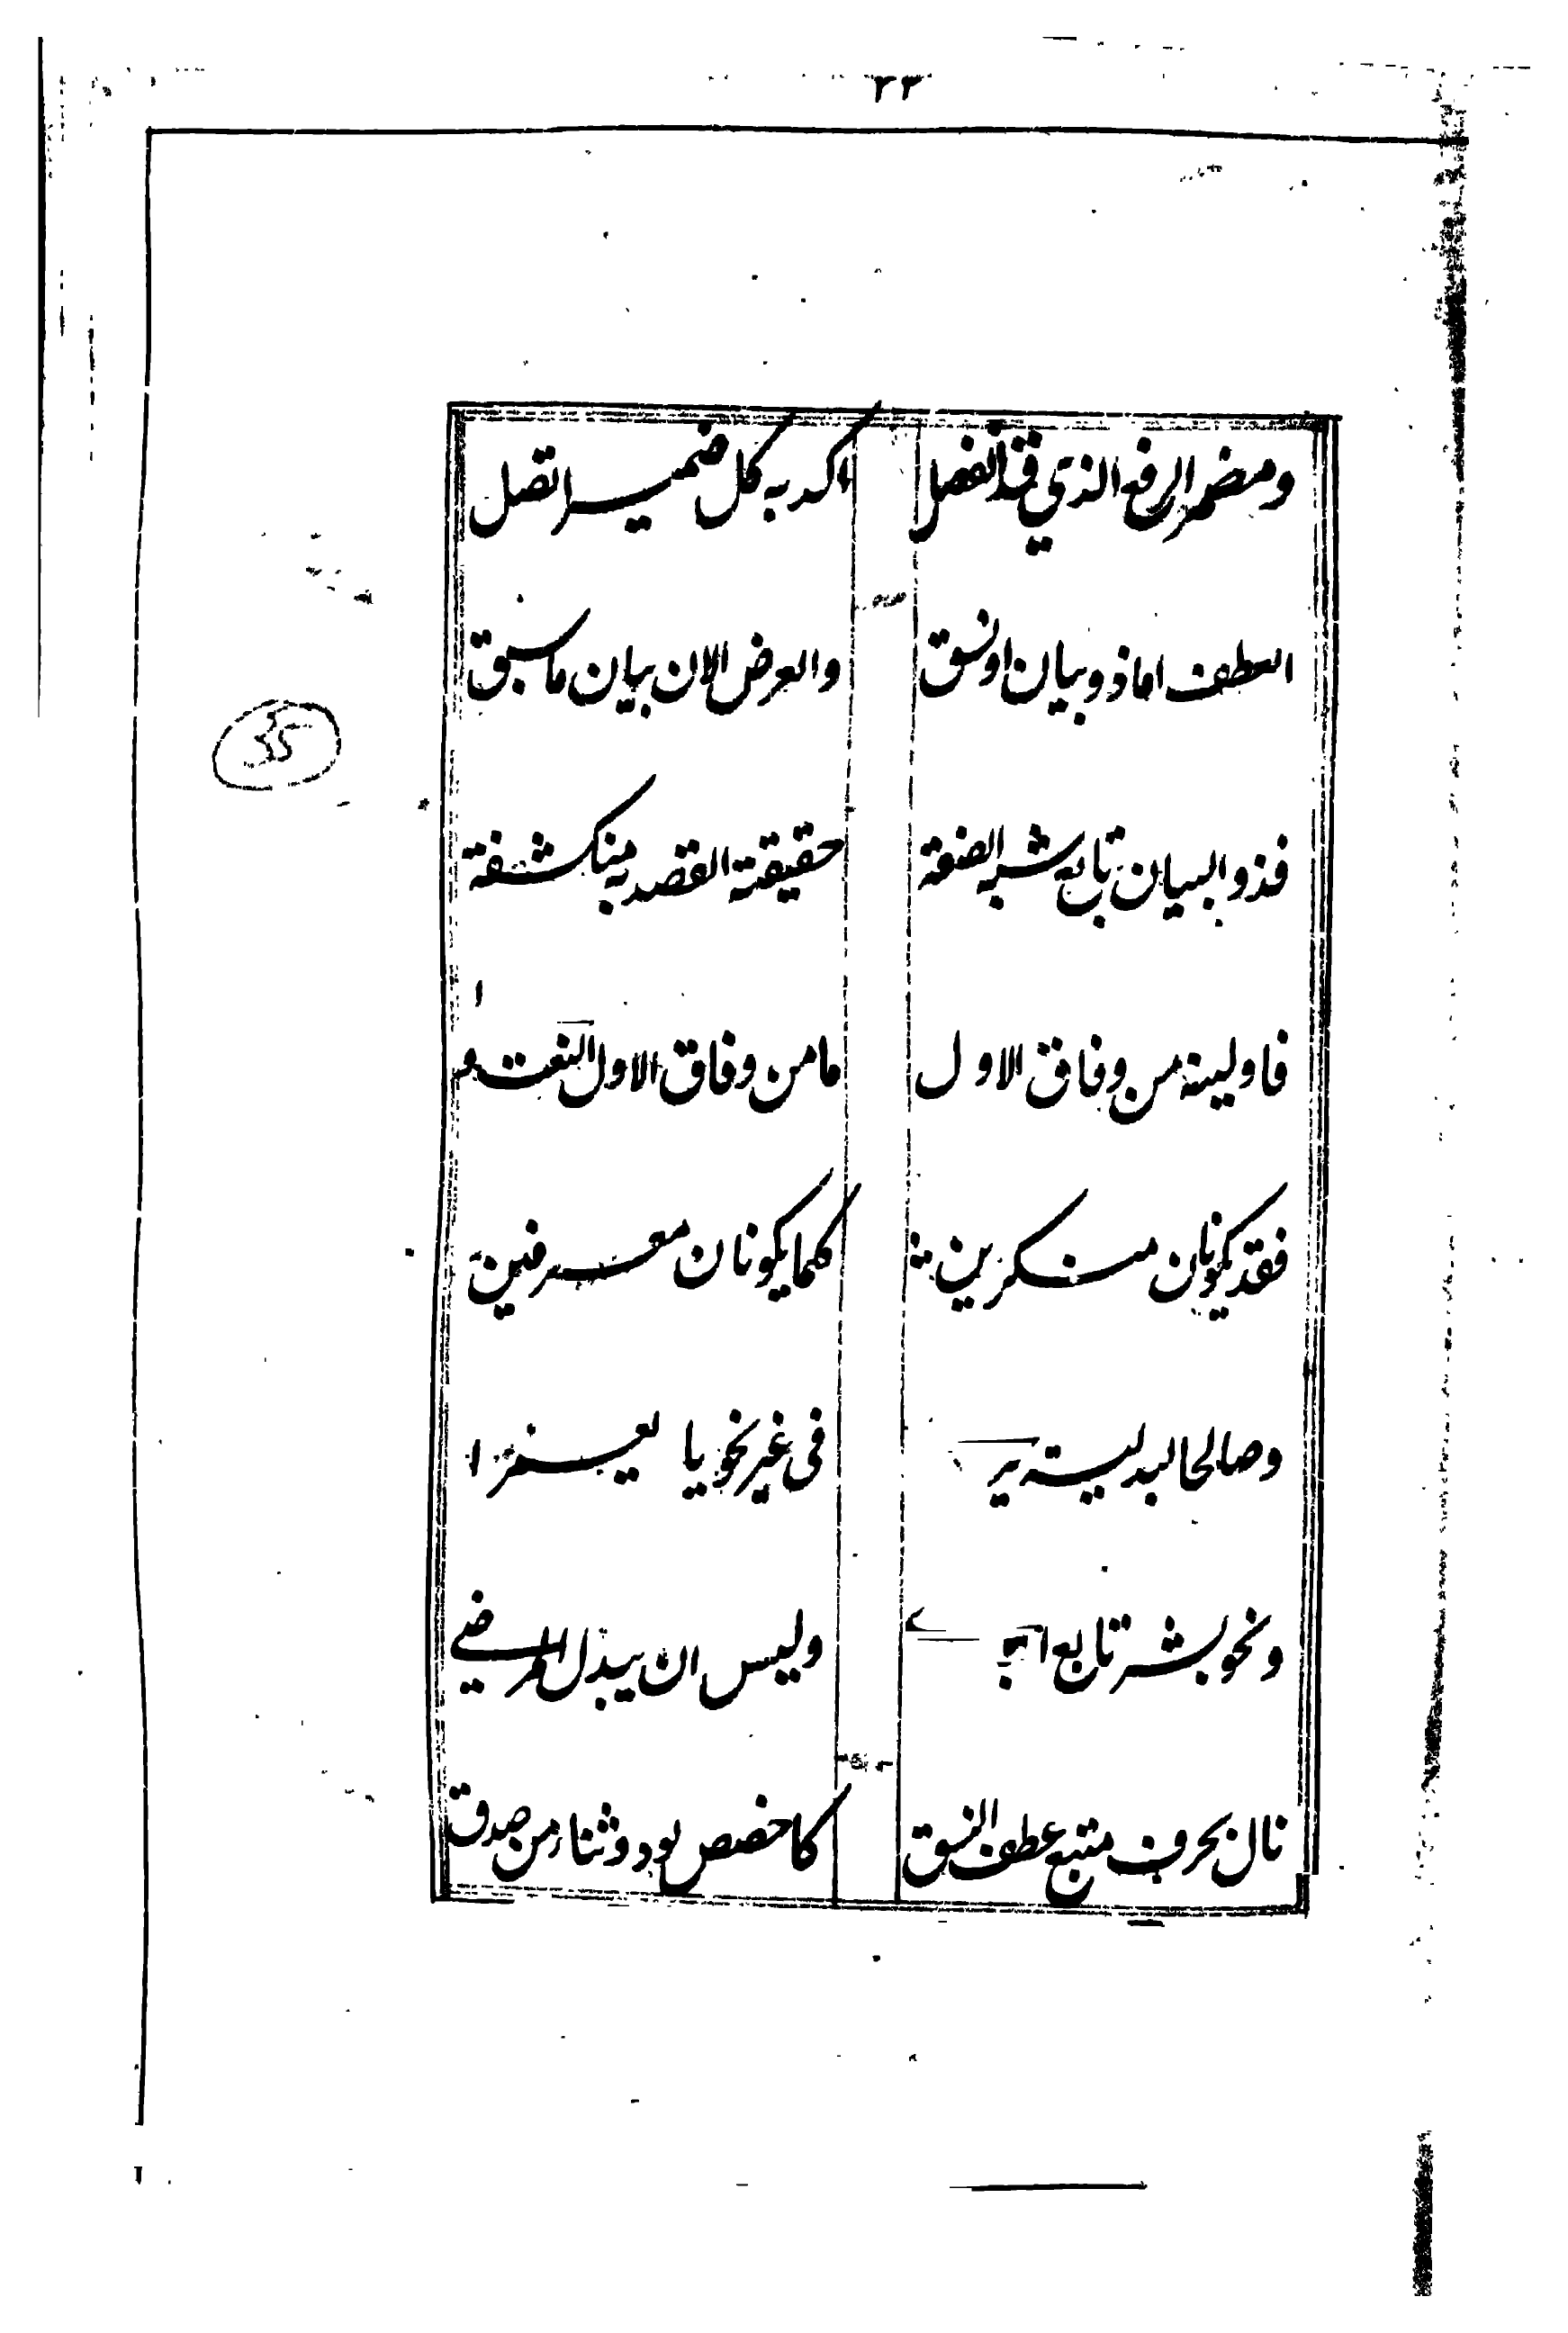 ٣٣
ومضمر الرفع الذي قد انفصل اكد به كل ضمير اتصل
العطف اما ذو بيان او نسق والعرض الان بيان ما سبق
فذو البيان تابع شبه الصفة حقيقة القصد به منكشفة
فاولينه من وفاق الاول ما من وفاق الاول النعت و
فقد يكونان منكرين كما يكونان معرفين
وصالحا لبدلية ير في غير نحو يا يعمرا
ونحو بشر تابع وليس ان يبدل المرضي
تال بحرف متبع عطف النسق كاخصص بود وثناء من صدق
35